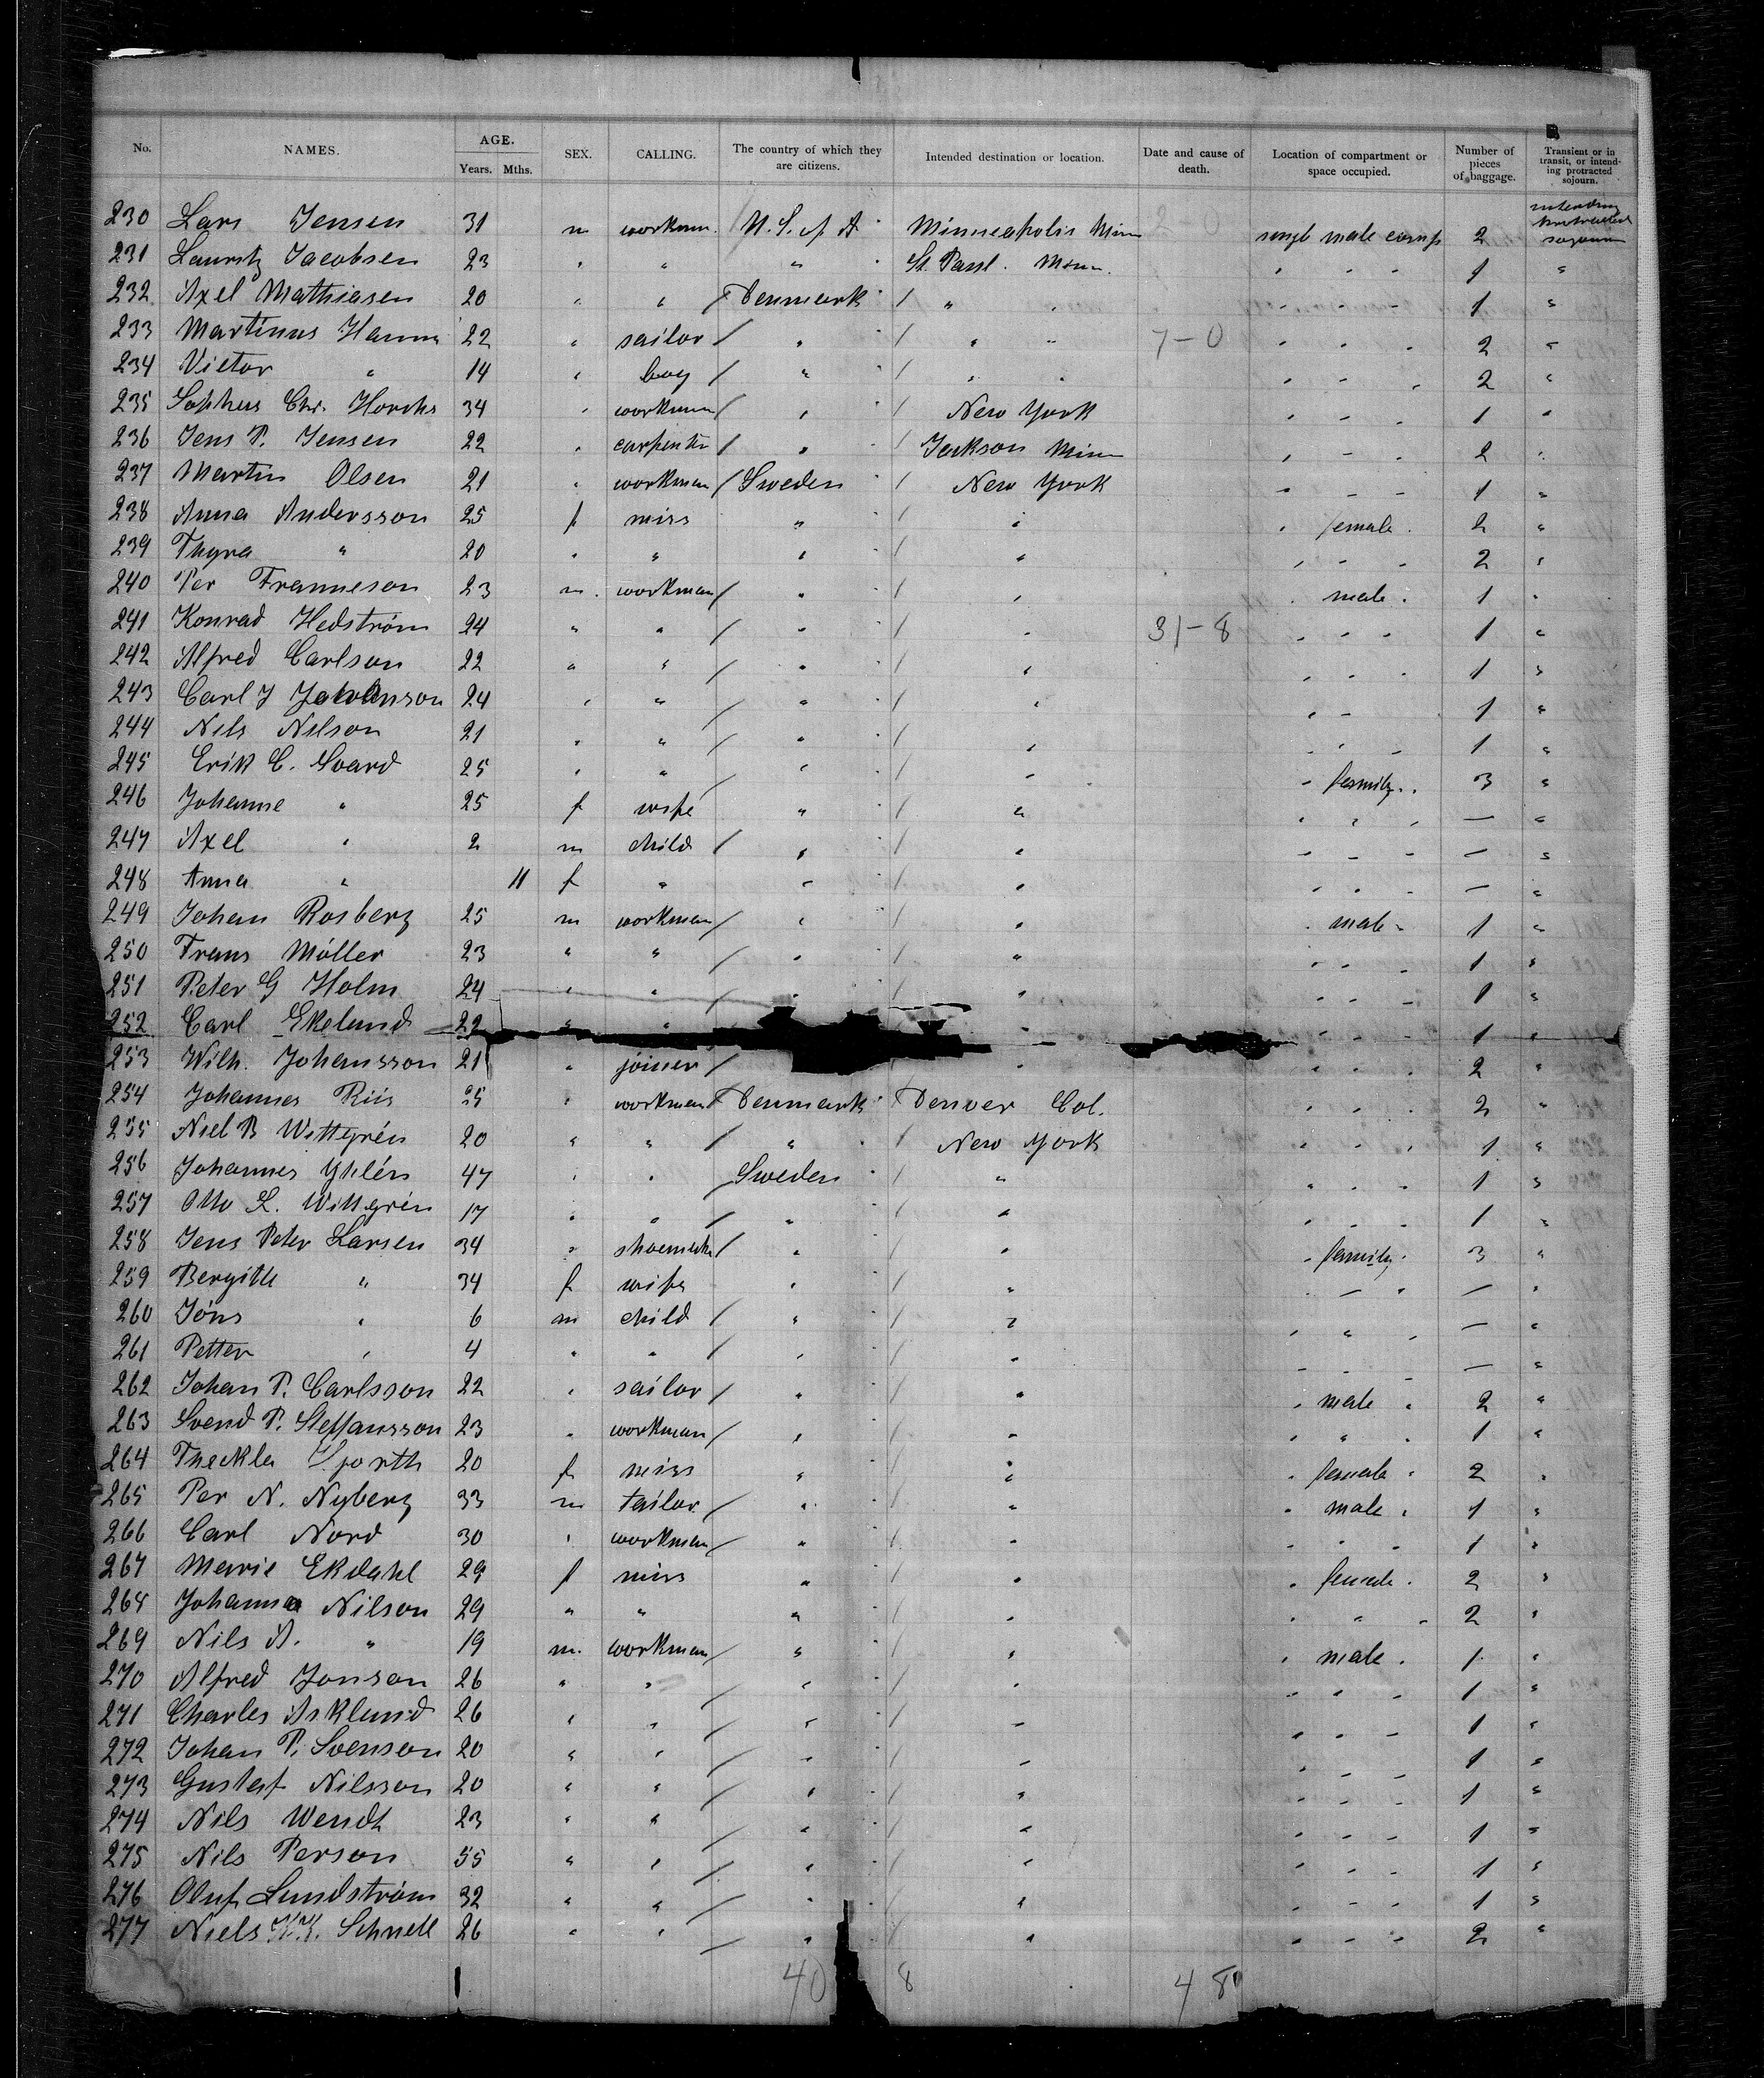 No. NAMES. AGE. Years. Mths. SEX. CALLING. The country of which they are citizens. Intended destination or location. Date and cause of death. Location of compartment or space occupied. Number of pieces of baggage. Transient or in transit, or intending protracted sojourn.
230 Lars Jensen 31 m workman. U. S. of A Minneapolis Minn 2 0 singl male comp 2 intending protracted sojourn
231 Lauritz Jacobsen 23 " " " St. Paul. Minn. " " " 1 "
232 Axel Mathiasen 20 " " Denmark " " " " 1 "
233 Martinus Hamm 22 " sailor " " " 7-0 " " " 2 "
234 Victor " 14 " boy " " " " " " 2 "
235 Sophus Chr. 34 " workman " New York " " " 1 "
236 Jens P. Jensen 22 " carpenter " Jackson Minn " " " 2 "
237 Martin Olsen 21 " workman Sweden New York " " " 1 "
238 Anna Andersson 25 f miss " " " female " 2 "
239 Thyra " 20 " " " " " " " 2 "
240 Per Franneson 23 m. workman " " " male " 1 "
241 Konrad Hedström 24 " " " " 31-8 " " " 1 "
242 Alfred Carlson 22 " " " " " " " 1 "
243 Carl J Johanson 24 " " " " " " 1 "
244 Nils Nilson 21 " " " " " " " 1 "
245 Erik C. Svard 25 " " " " " family " 3 "
246 Johanne " 25 f wife " " " " " — "
247 Axel " 2 m child " " " " " — "
248 Anna " 11 f " " " " " " — "
249 Johan Rosberg 25 m workman " " " male " 1 "
250 Frans Möller 23 " " " " " " " 1 "
251 Peter G Holm 24 " " " " " " " 1 "
252 Carl Ekelund 22 " " " " " " 1 "
253 Wilh. Johansson 21 " joiner " " " " 2 "
254 Johannes Riis 25 " workman Denmark Denver Col. " " " 2 "
255 Niel B Wittgrén 20 " " " New York " " " 1 "
256 Johannes Yhlén 47 " " Sweden " " " " 1 "
257 Otto L. Wittgrén 17 " " " " " " " 1 "
258 Jens Peter Larsen 34 " shoemaker " " " family " 3 "
259 Bergitte " 34 f wife " " " — " — "
260 Jöns " 6 m child " " " " " — "
261 Petter " 4 " " " " " " " — "
262 Johan P. Carlsson 22 " sailor " " " male " 2 "
263 Svend P. Steffansson 23 " workman " " " " " 1 "
264 Theckla Hjorth 20 f miss " " " female " 2 "
265 Per N. Nyberg 33 m tailor " " " male " 1 "
266 Carl Nord 30 " workman " " " " " 1 "
267 Marie Ekdahl 29 f miss " " " female " 2 "
268 Johanna Nilson 29 " " " " " " " 2 "
269 Nils A. " 19 m. workman " " " male " 1 "
270 Alfred Jonson 26 " " " " " " " 1 "
271 Charles Asklund 26 " " " " " " " 1 "
272 Johan P. Svenson 20 " " " " " " " 1 "
273 Gustaf Nilsson 20 " " " " " " " 1 "
274 Nils Wendt 23 " " " " " " " 1 "
275 Nils Person 55 " " " " " " " 1 "
276 Oluf Lundström 32 " " " " " " " 1 "
277 Niels K.K. Schnell 26 " " " " " " " 2 "
40 8 48